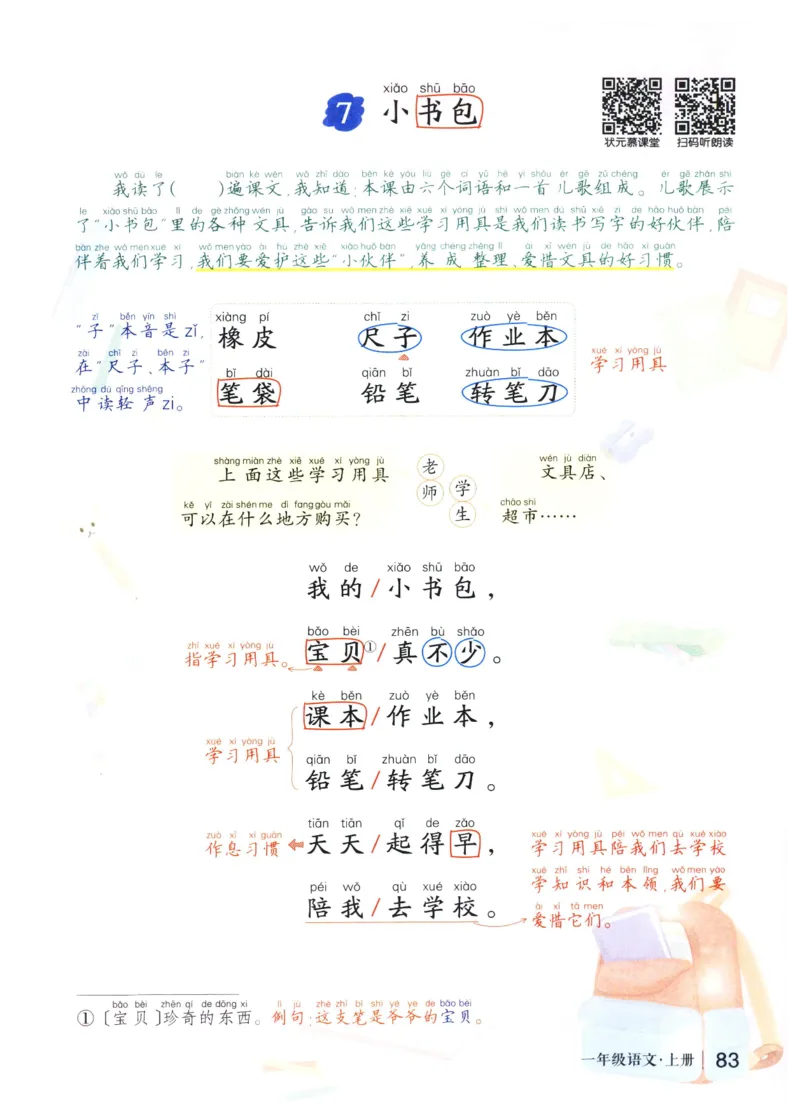 xiǎo shū bāo
7 小书包
状元慕课堂 扫码听朗读
wǒ dú le biàn kè wén wǒ zhī dào běn kè yóu liù gè cí yǔ hé yì shǒu ér gē zǔ chéng ér gē zhǎn shì
我读了( )遍课文,我知道:本课由六个词语和一首儿歌组成。儿歌展示
le xiǎo shū bāo lǐ de gè zhǒng wén jù gào su wǒ men zhè xiē xué xí yòng jù shì wǒ men dú shū xiě zì de hǎo huǒ bàn péi
了“小书包”里的各种文具,告诉我们这些学习用具是我们读书写字的好伙伴,陪
bàn zhe wǒ men xué xí wǒ men yào ài hù zhè xiē xiǎo huǒ bàn yǎng chéng zhěng lǐ ài xī wén jù de hǎo xí guàn
伴着我们学习,我们要爱护这些“小伙伴”,养成整理、爱惜文具的好习惯。
zǐ běn yīn shì
“子”本音是zǐ,
zài chǐ zi běn zi
在“尺子、本子”
zhōng dú qīng shēng
中读轻声zi。
xiàng pí chǐ zi zuò yè běn
橡皮 尺子 作业本
bǐ dài qiān bǐ zhuàn bǐ dāo
笔袋 铅笔 转笔刀
xué xí yòng jù
学习用具
shàng miàn zhè xiē xué xí yòng jù
上面这些学习用具
kě yǐ zài shén me dì fang gòu mǎi
可以在什么地方购买?
老师
学生
wén jù diàn
文具店、
chāo shì
超市……
wǒ de xiǎo shū bāo
我的/小书包,
bǎo bèi zhēn bù shǎo
宝贝①/真不少。
zhǐ xué xí yòng jù
指学习用具。
kè běn zuò yè běn
课本/作业本,
xué xí yòng jù
学习用具
qiān bǐ zhuàn bǐ dāo
铅笔/转笔刀。
tiān tiān qǐ de zǎo
天天/起得早,
zuò xī xí guàn
作息习惯
péi wǒ qù xué xiào
陪我/去学校。
xué xí yòng jù péi wǒ men qù xué xiào
学习用具陪我们去学校
xué zhī shi hé běn lǐng wǒ men yào
学知识和本领,我们要
ài xī tā men
爱惜它们。
bǎo bèi zhēn qí de dōng xi lì jù zhè zhī bǐ shì yé ye de bǎo bèi
①〔宝贝〕珍奇的东西。例句:这支笔是爷爷的宝贝。
一年级语文·上册 83